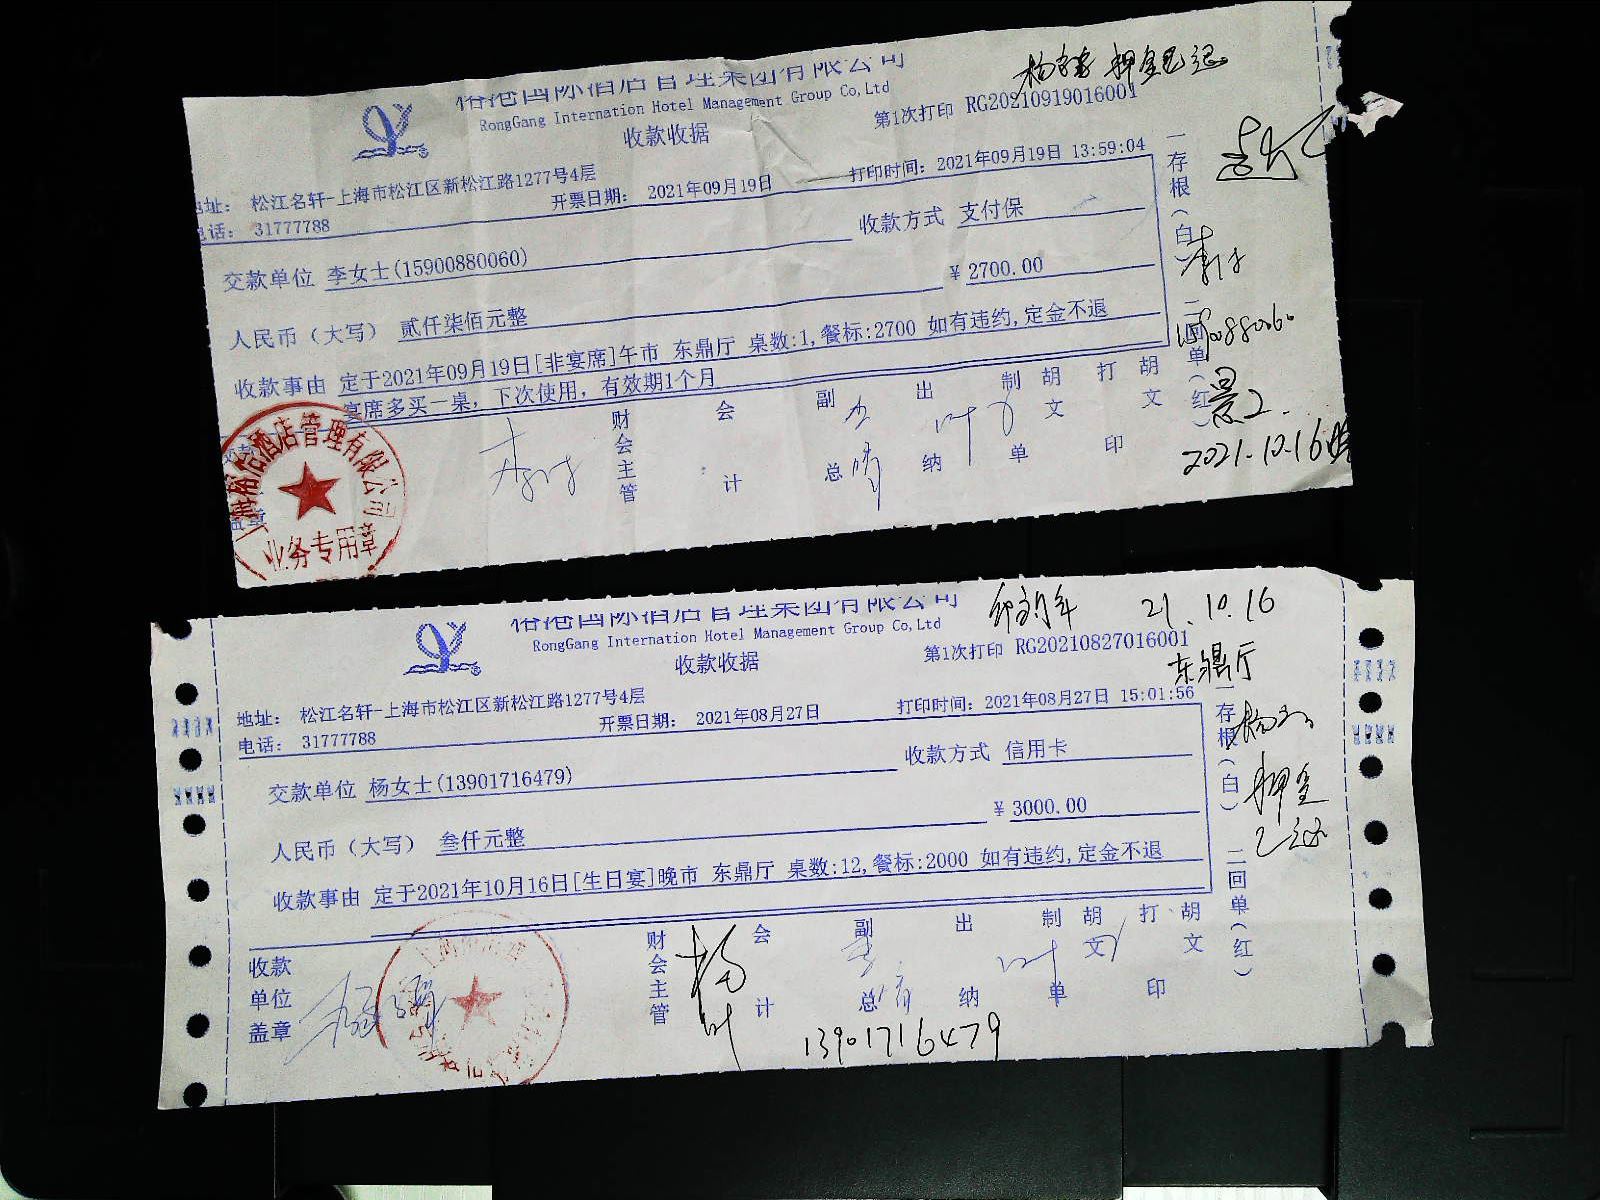 裕港国际酒店管理集团有限公司
RongGang Internation Hotel Management Group Co,Ltd
收款收据
押金已退
第1次打印 RG20210919016001
地址： 松江名轩-上海市松江区新松江路1277号4层
电话： 31777788
开票日期： 2021年09月19日
打印时间：2021年09月19日 13:59:04
交款单位 李女士(15900880060)
收款方式 支付保
人民币（大写） 贰仟柒佰元整
￥2700.00
收款事由 定于2021年09月19日[非宴席]午市 东鼎厅 桌数:1,餐标:2700 如有违约,定金不退
宴席多买一桌，下次使用，有效期1个月
财会主管
会计
副总
出纳
制单
胡文
打印
胡文
一存根(白)
二回单(红)
15900880060
2021.10.16
业务专用章
裕港国际酒店管理集团有限公司
RongGang Internation Hotel Management Group Co,Ltd
收款收据
21.10.16
第1次打印 RG20210827016001
东鼎厅
地址： 松江名轩-上海市松江区新松江路1277号4层
电话： 31777788
开票日期： 2021年08月27日
打印时间：2021年08月27日 15:01:56
交款单位 杨女士(13901716479)
收款方式 信用卡
人民币（大写） 叁仟元整
￥3000.00
收款事由 定于2021年10月16日[生日宴]晚市 东鼎厅 桌数:12,餐标:2000 如有违约,定金不退
收款单位盖章
财会主管
会计
副总
出纳
制单
胡文
打印
胡文
一存根(白)
二回单(红)
押金
13901716479